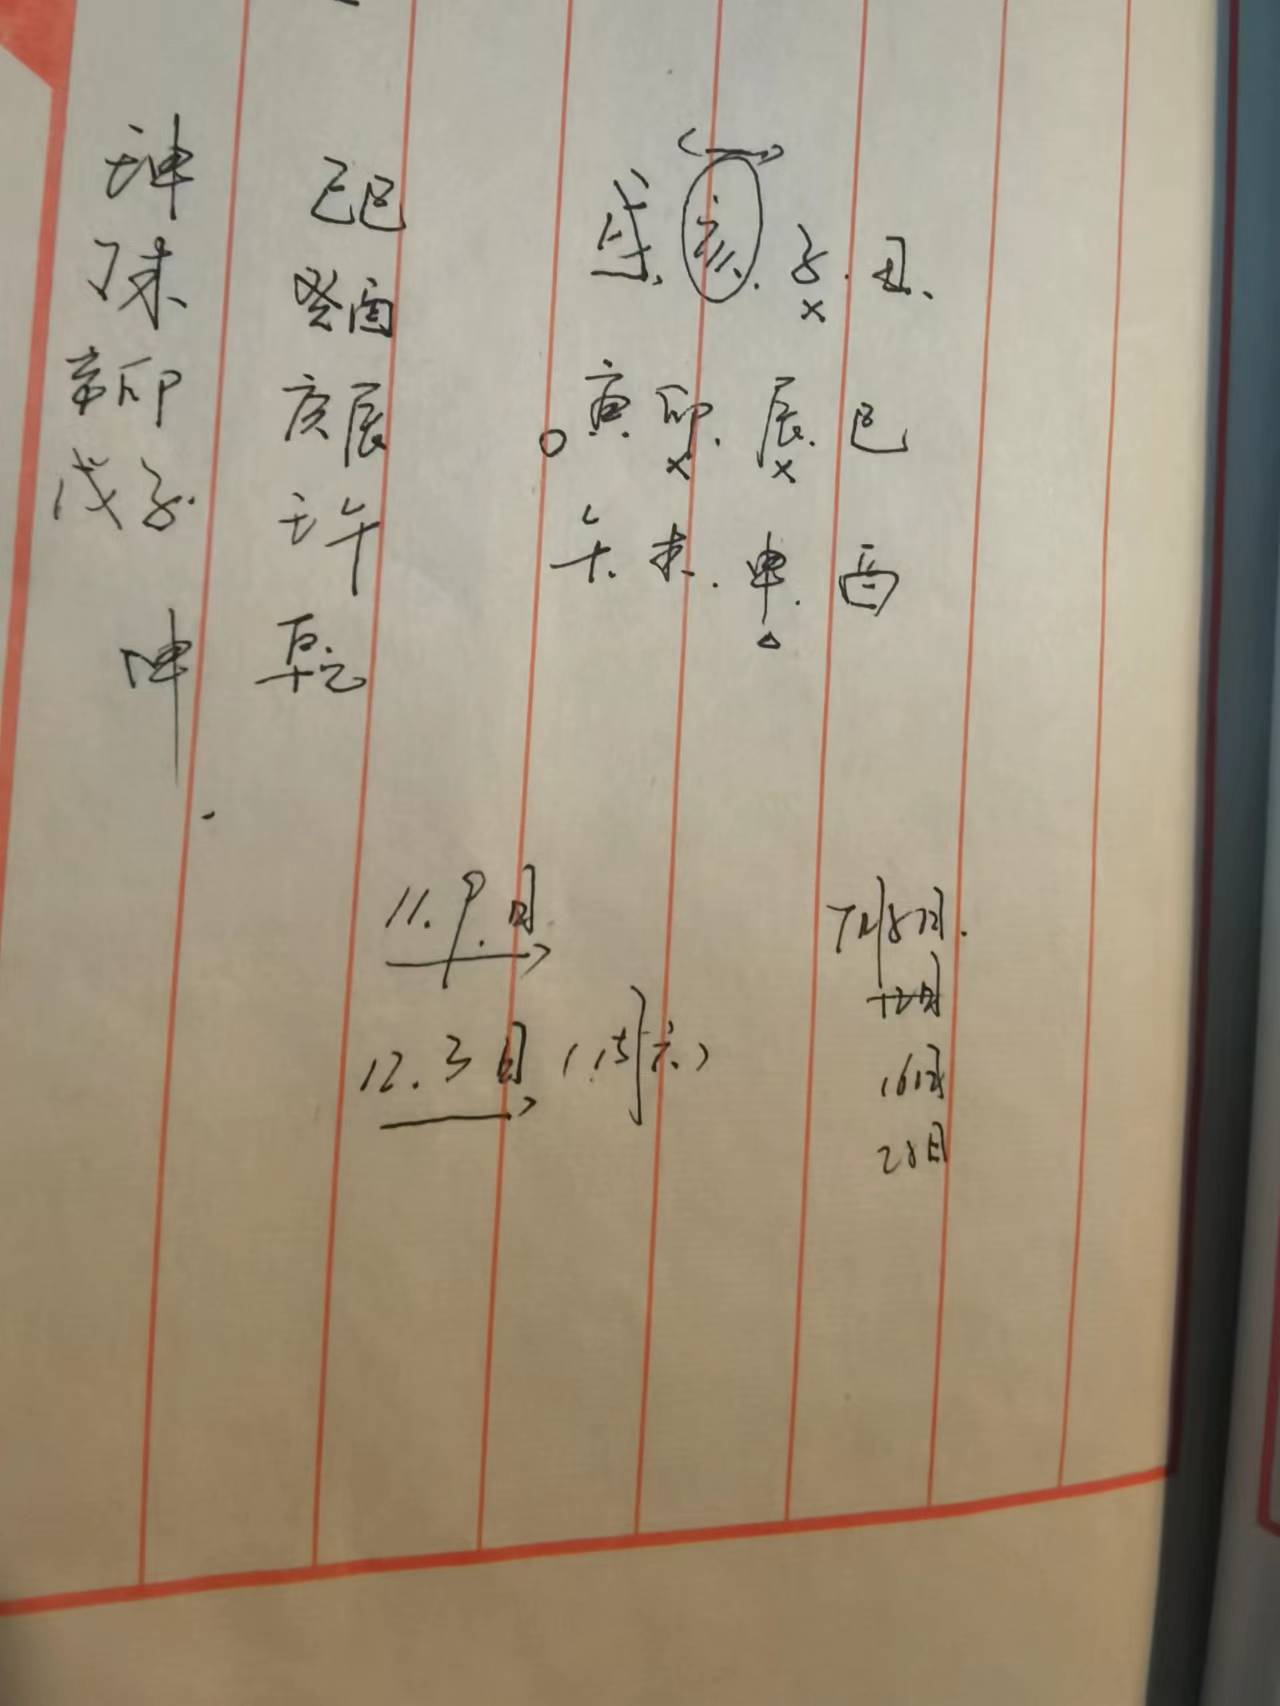 壬申
丁未
辛卯
戊子
坤
己巳
癸酉
庚辰
壬午
乾
戌、亥.子.丑、
寅.卯.辰.巳
午.未.申.酉
11.9.日
12.3日(周六)
7月8日.
12日
16日
28日